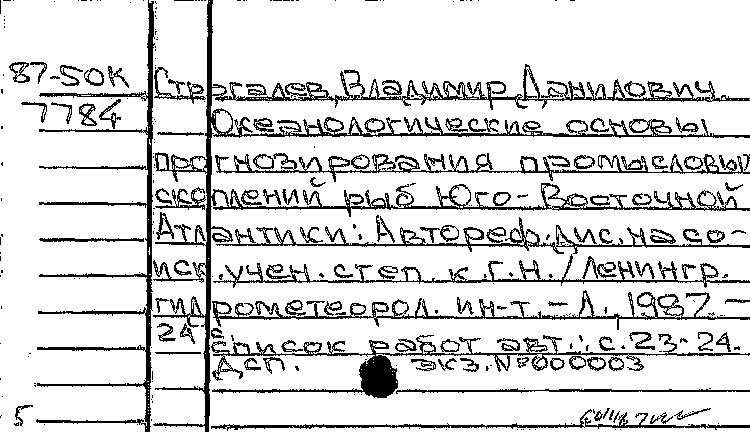 87-50К Строгалев, Владимир Данилович.
7784 Океанологические основы
прогнозирования промысловых
скоплений рыб Юго-Восточной
Атлантики: Автореф. дис. на со-
иск. учен. степ. к.г.н. / Ленингр.
гидрометеорол. ин-т. – Л., 1987. –
24 с.
Список работ авт.: с. 23-24.
Дсп. Экз. № 000003
5